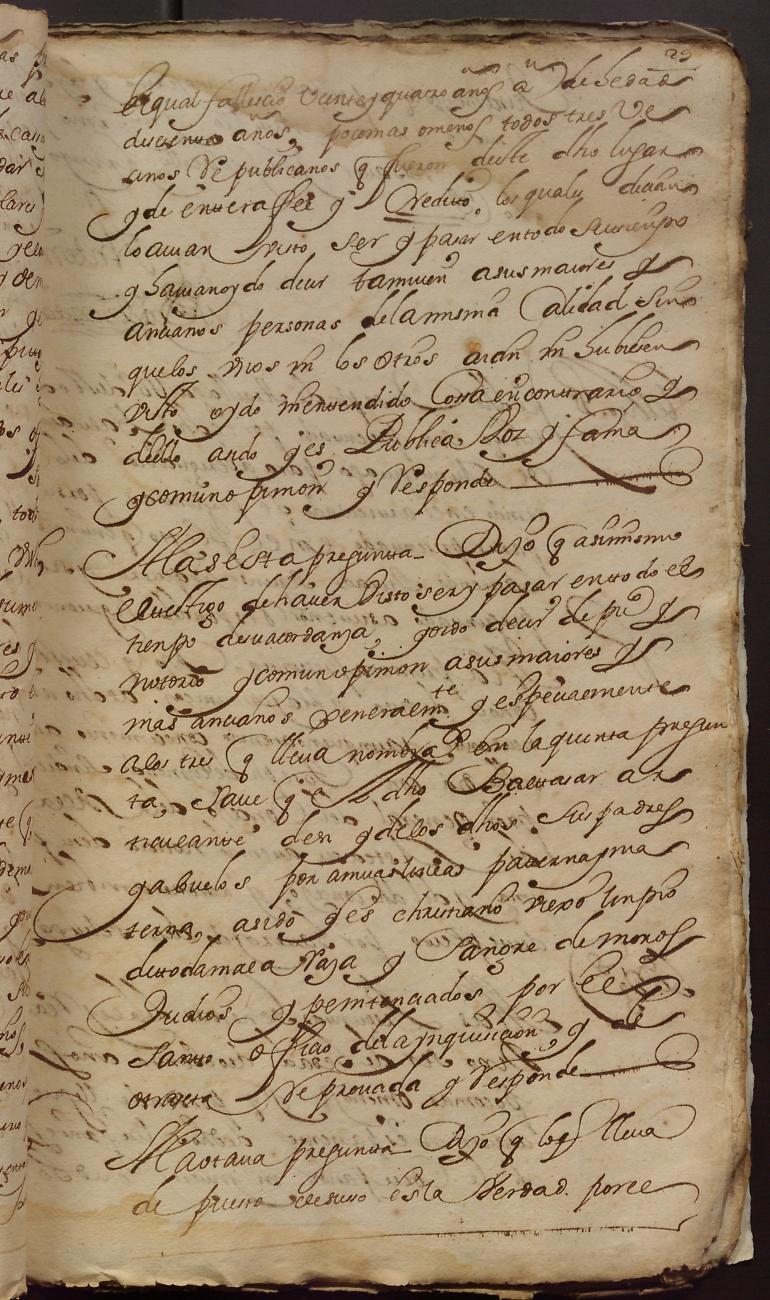 29
el qual fallescio veinte y quatro años a de hedad
de sesenta años, poco mas o menos todos tres Ve
anos Republicanos q fueron deste dho lugar
y de entera fee y Credito, los quales decian
lo auian visto ser y passar en todo su tiempo
y hauian oydo decir tamuien a sus maiores y
ancianos personas de la misma Calidad sin
que los vnos ni los otros aian ni hubiesen
visto oydo ni entendido Cossa en contrario y
dello a sido y es Publica Voz y fama
y comun opinion y Responde
A la sesta pregunta Dijo q asimismo
el testigo de hauer Visto ser y pasar en todo el
tienpo de su acordanza, y oido decir de puco y
notorio y comun opinion a sus maiores y
mas ancianos generalemte y especialmente
a los tres q lleua nombrados en la quinta pregun
ta, saue q el dho Baltasar ar
ticulante den y de los dhos sus padres
y abuelos por amuas lineas paterna y ma
terna, a sido y es christiano viexo limpio
de toda mala Raza y Sangre de moros
Judios y penitenciados por el
Santo officio de la ynquisicion, y de
otra seta Reprouada y Responde
A la otaua pregunta Dijo q lo q lleua
de puesto es la Verdad por el